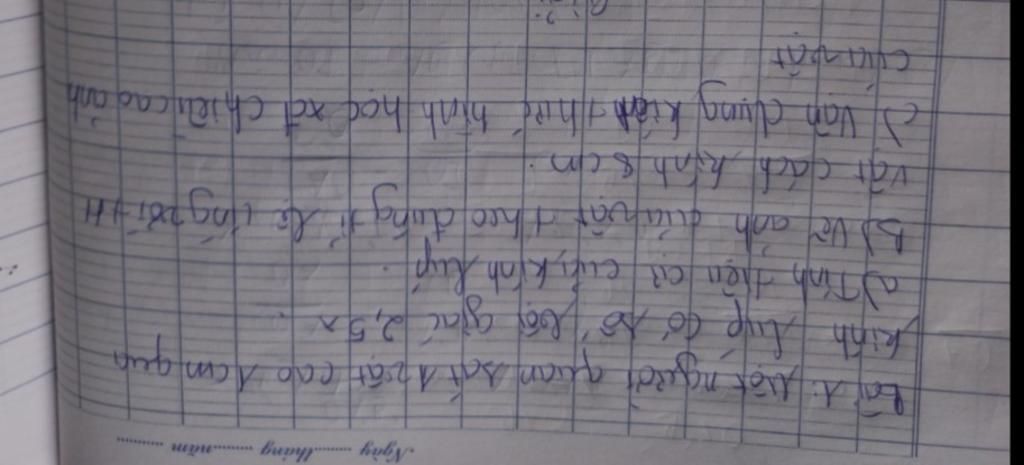 Ngày ........ tháng ........ năm ........
Bài 1: Một người quan sát 1 vật cao 1cm qua
kính lúp có số bội giác 2,5x.
a) Tính tiêu cự của kính lúp.
b) Vẽ ảnh của vật theo đúng tỉ lệ ứng với TH
vật cách kính 8cm.
c) Vận dụng kiến thức hình học xđ chiều cao ảnh
của vật